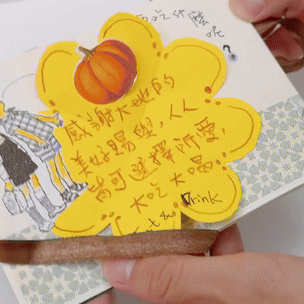 吃什麼呢
?
感謝大地的
美好賜與，人人
皆可選擇所愛，
大吃大喝。
Eat & Drink